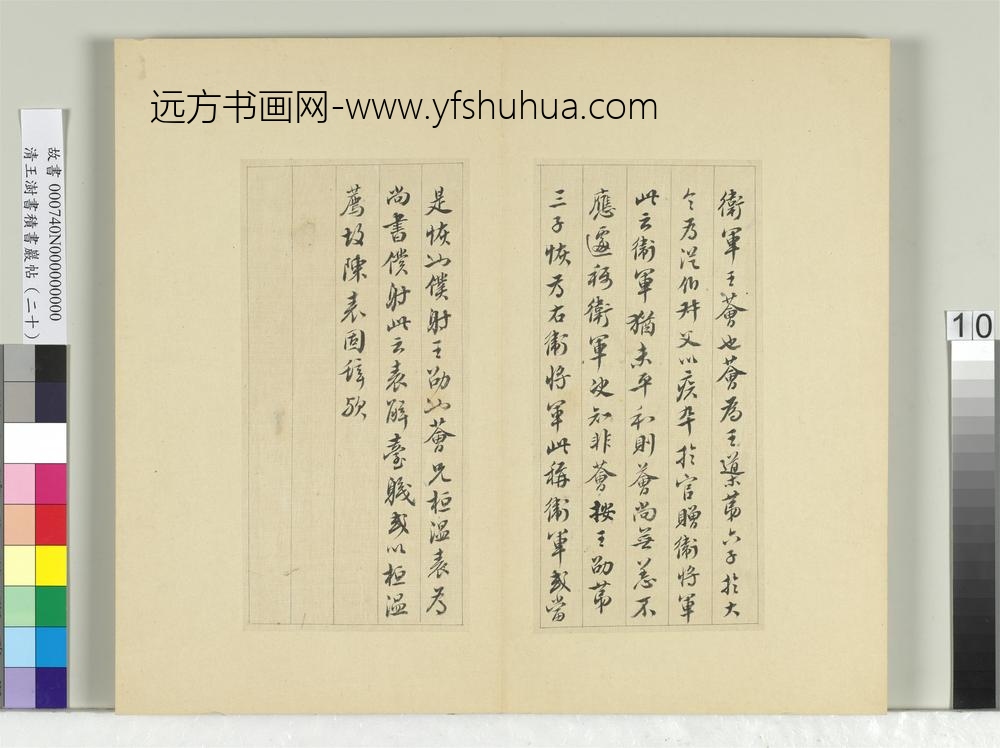 远方书画网-www.yfshuhua.com
故書 000740N000000000
清王澍書積書巖帖（二十）
10
衛軍王薈也薈為王導第六子於大
令為從伯叔父以疾卒於官贈衛將軍
此云衛軍猶未平和則薈尚無恙不
應遽稱衛軍決知非薈按王劭第
三子恢為右衛將軍此稱衛軍或當
是恢也僕射王劭也薈兄桓溫表為
尚書僕射此云表解臺職或以桓溫
薦故陳表固辭歟